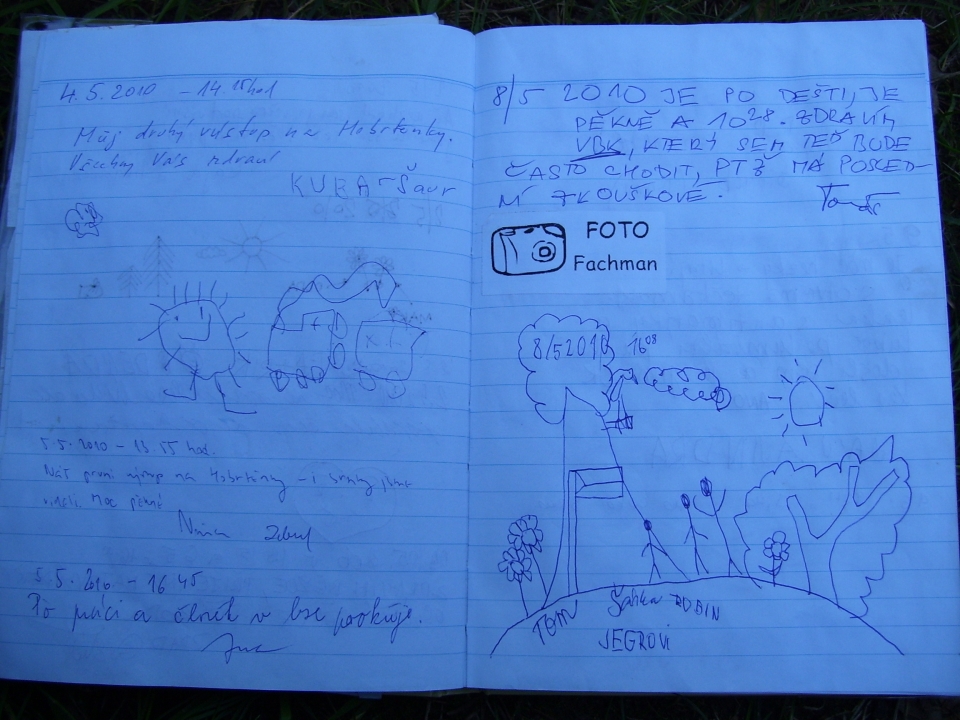 4.5.2010 - 14 15 hod
Můj druhý výstup na Hobrtěnky.
Všechny Vás zdraví
KUBA - Šavr
5.5.2010 - 13 55 hod.
Náš první výstup na Hobrtěnky - i srnky jsme
viděli. Moc pěkné
5.5. 2010 - 16 45
Po práci a člověk v lese
8/5 2010 JE PO DEŠTI, JE
PĚKNĚ A 10 28. ZDRAVÍM
VBK, KTERÝ SEM TEĎ BUDE
ČASTO CHODIT, PTŽ MÁ POSLED-
NÍ ZKOUŠKOVÉ.
Tomáš
FOTO
Fachman
8/5 2010 16 08
TOM Šárka ROBIN
JEGROVI